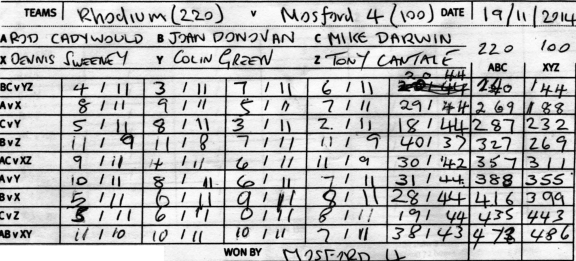 TEAMS Rhodium (220) V Mosford 4 (100) DATE 19/11/2014
A ROD CADYWOULD B JOAN DONOVAN C MIKE DARWIN 220 100
X DENNIS SWEENEY Y COLIN GREEN Z TONY CANTALE ABC XYZ
BCvYZ 4/11 3/11 7/11 6/11 20 44 240 144
AvX 8/11 9/11 5/11 7/11 29/44 269 188
CvY 5/11 8/11 3/11 2/11 18/44 287 232
BvZ 11/9 11/8 7/11 11/9 40/37 327 269
ACvXZ 9/11 4/11 6/11 11/9 30/42 357 311
AvY 10/11 8/11 6/11 7/11 31/44 388 355
BvX 5/11 6/11 9/11 8/11 28/44 416 399
CvZ 5/11 6/11 0/11 8/11 19/44 435 443
ABvXY 11/10 10/11 10/11 7/11 38/43 473 486
WON BY MOSFORD 4